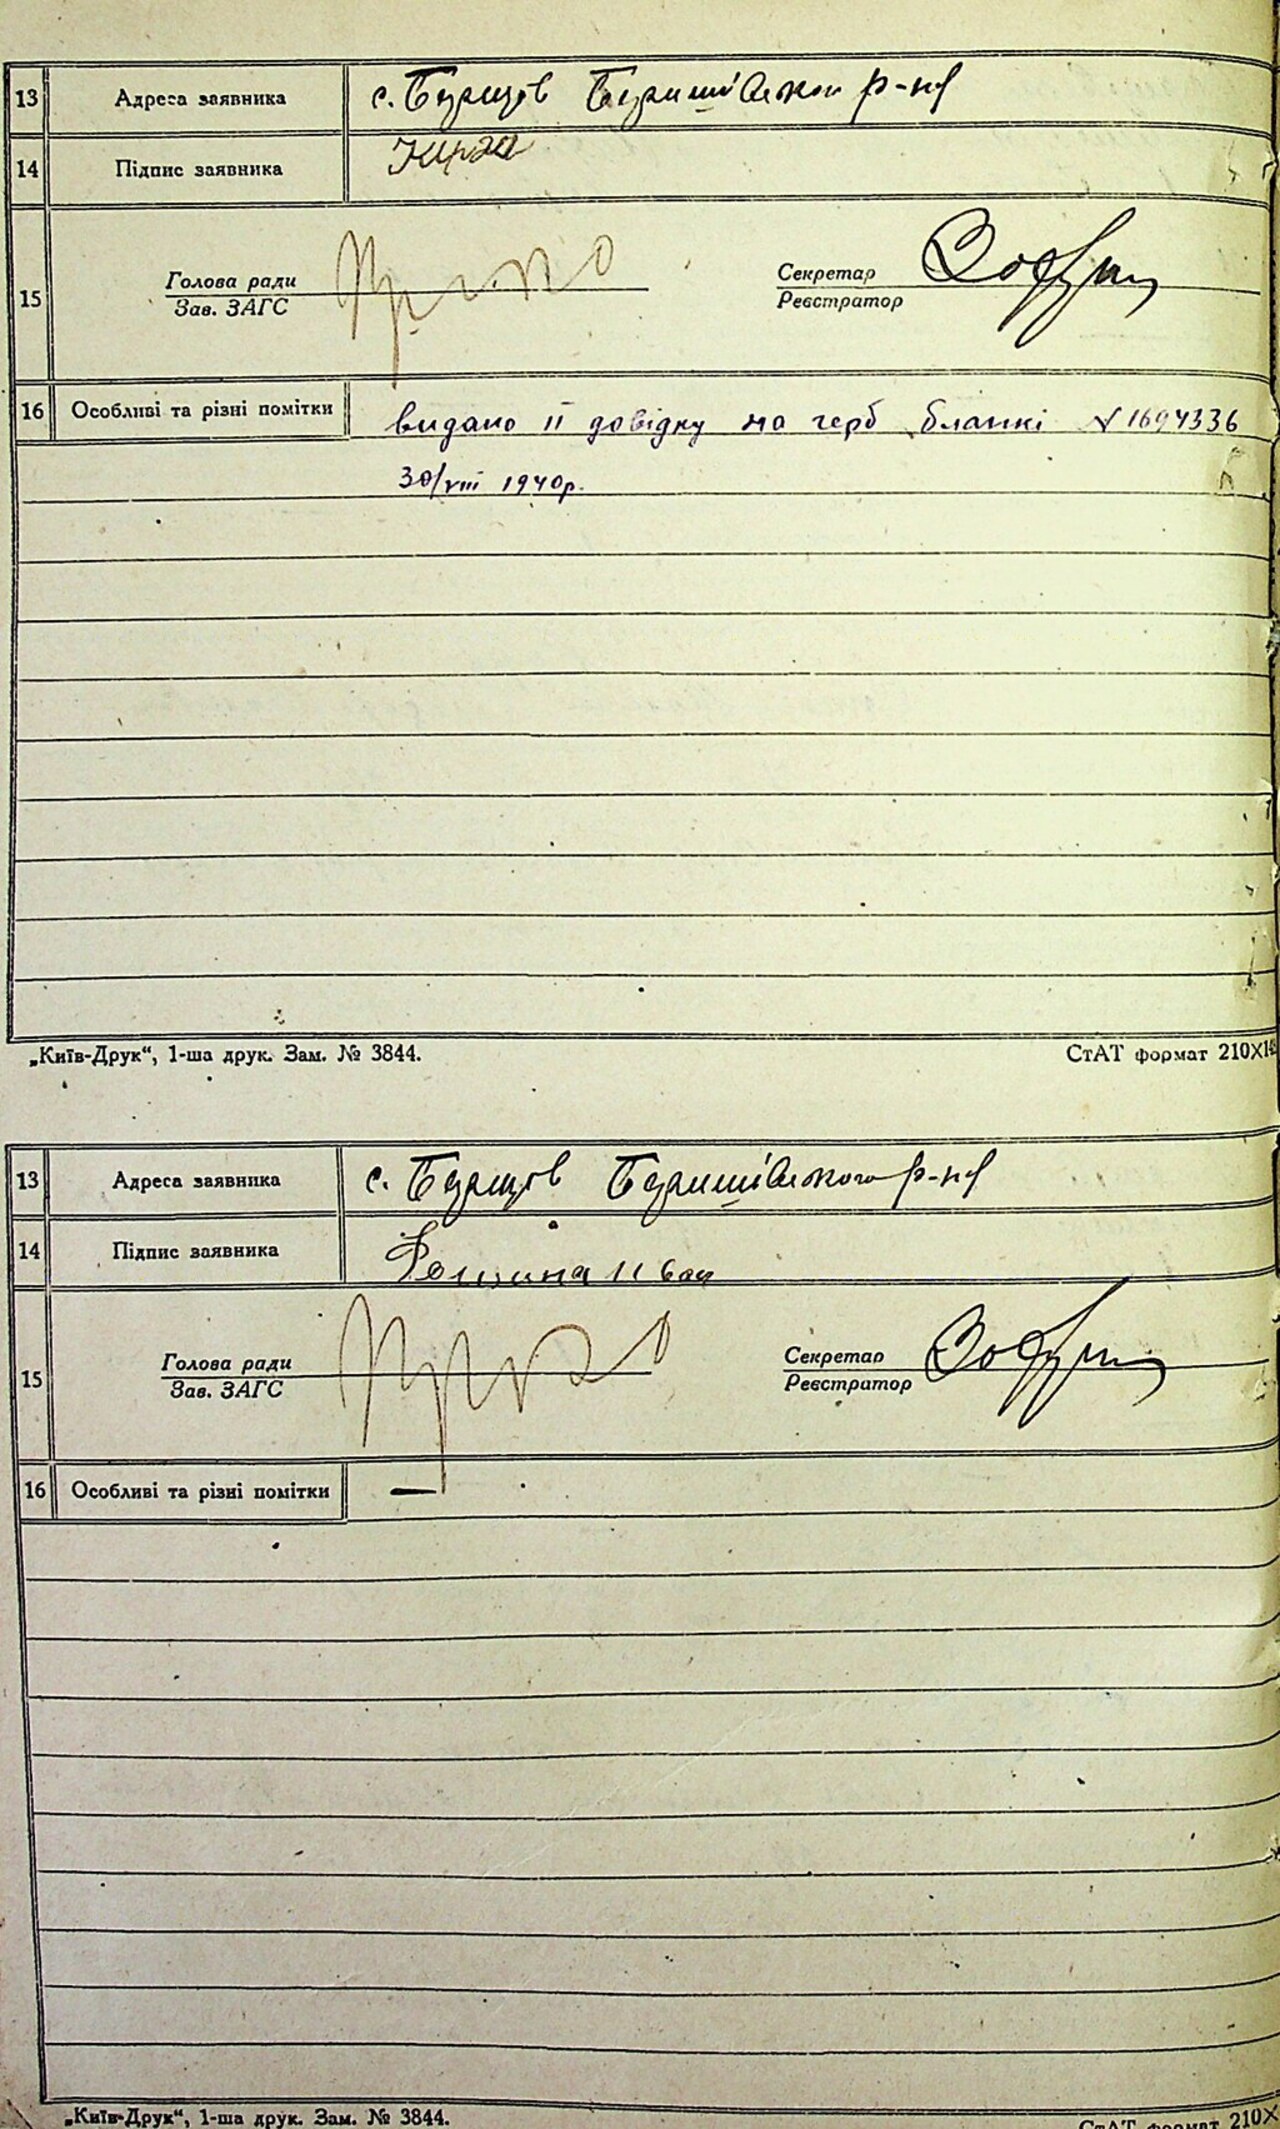 13 Адреса заявника с. Бурщов р-ну
14 Підпис заявника
15 Голова ради
Зав. ЗАГС
Секретар
Реєстратор
16 Особливі та різні помітки видано II довідку на герб бланкі № 1694336
30/VIII 1940р.
„Київ-Друк“, 1-ша друк. Зам. № 3844. СтАТ формат 210X148
13 Адреса заявника с. Бурщов р-ну
14 Підпис заявника Іван
15 Голова ради
Зав. ЗАГС
Секретар
Реєстратор
16 Особливі та різні помітки —
„Київ-Друк“, 1-ша друк. Зам. № 3844. СтАТ формат 210X